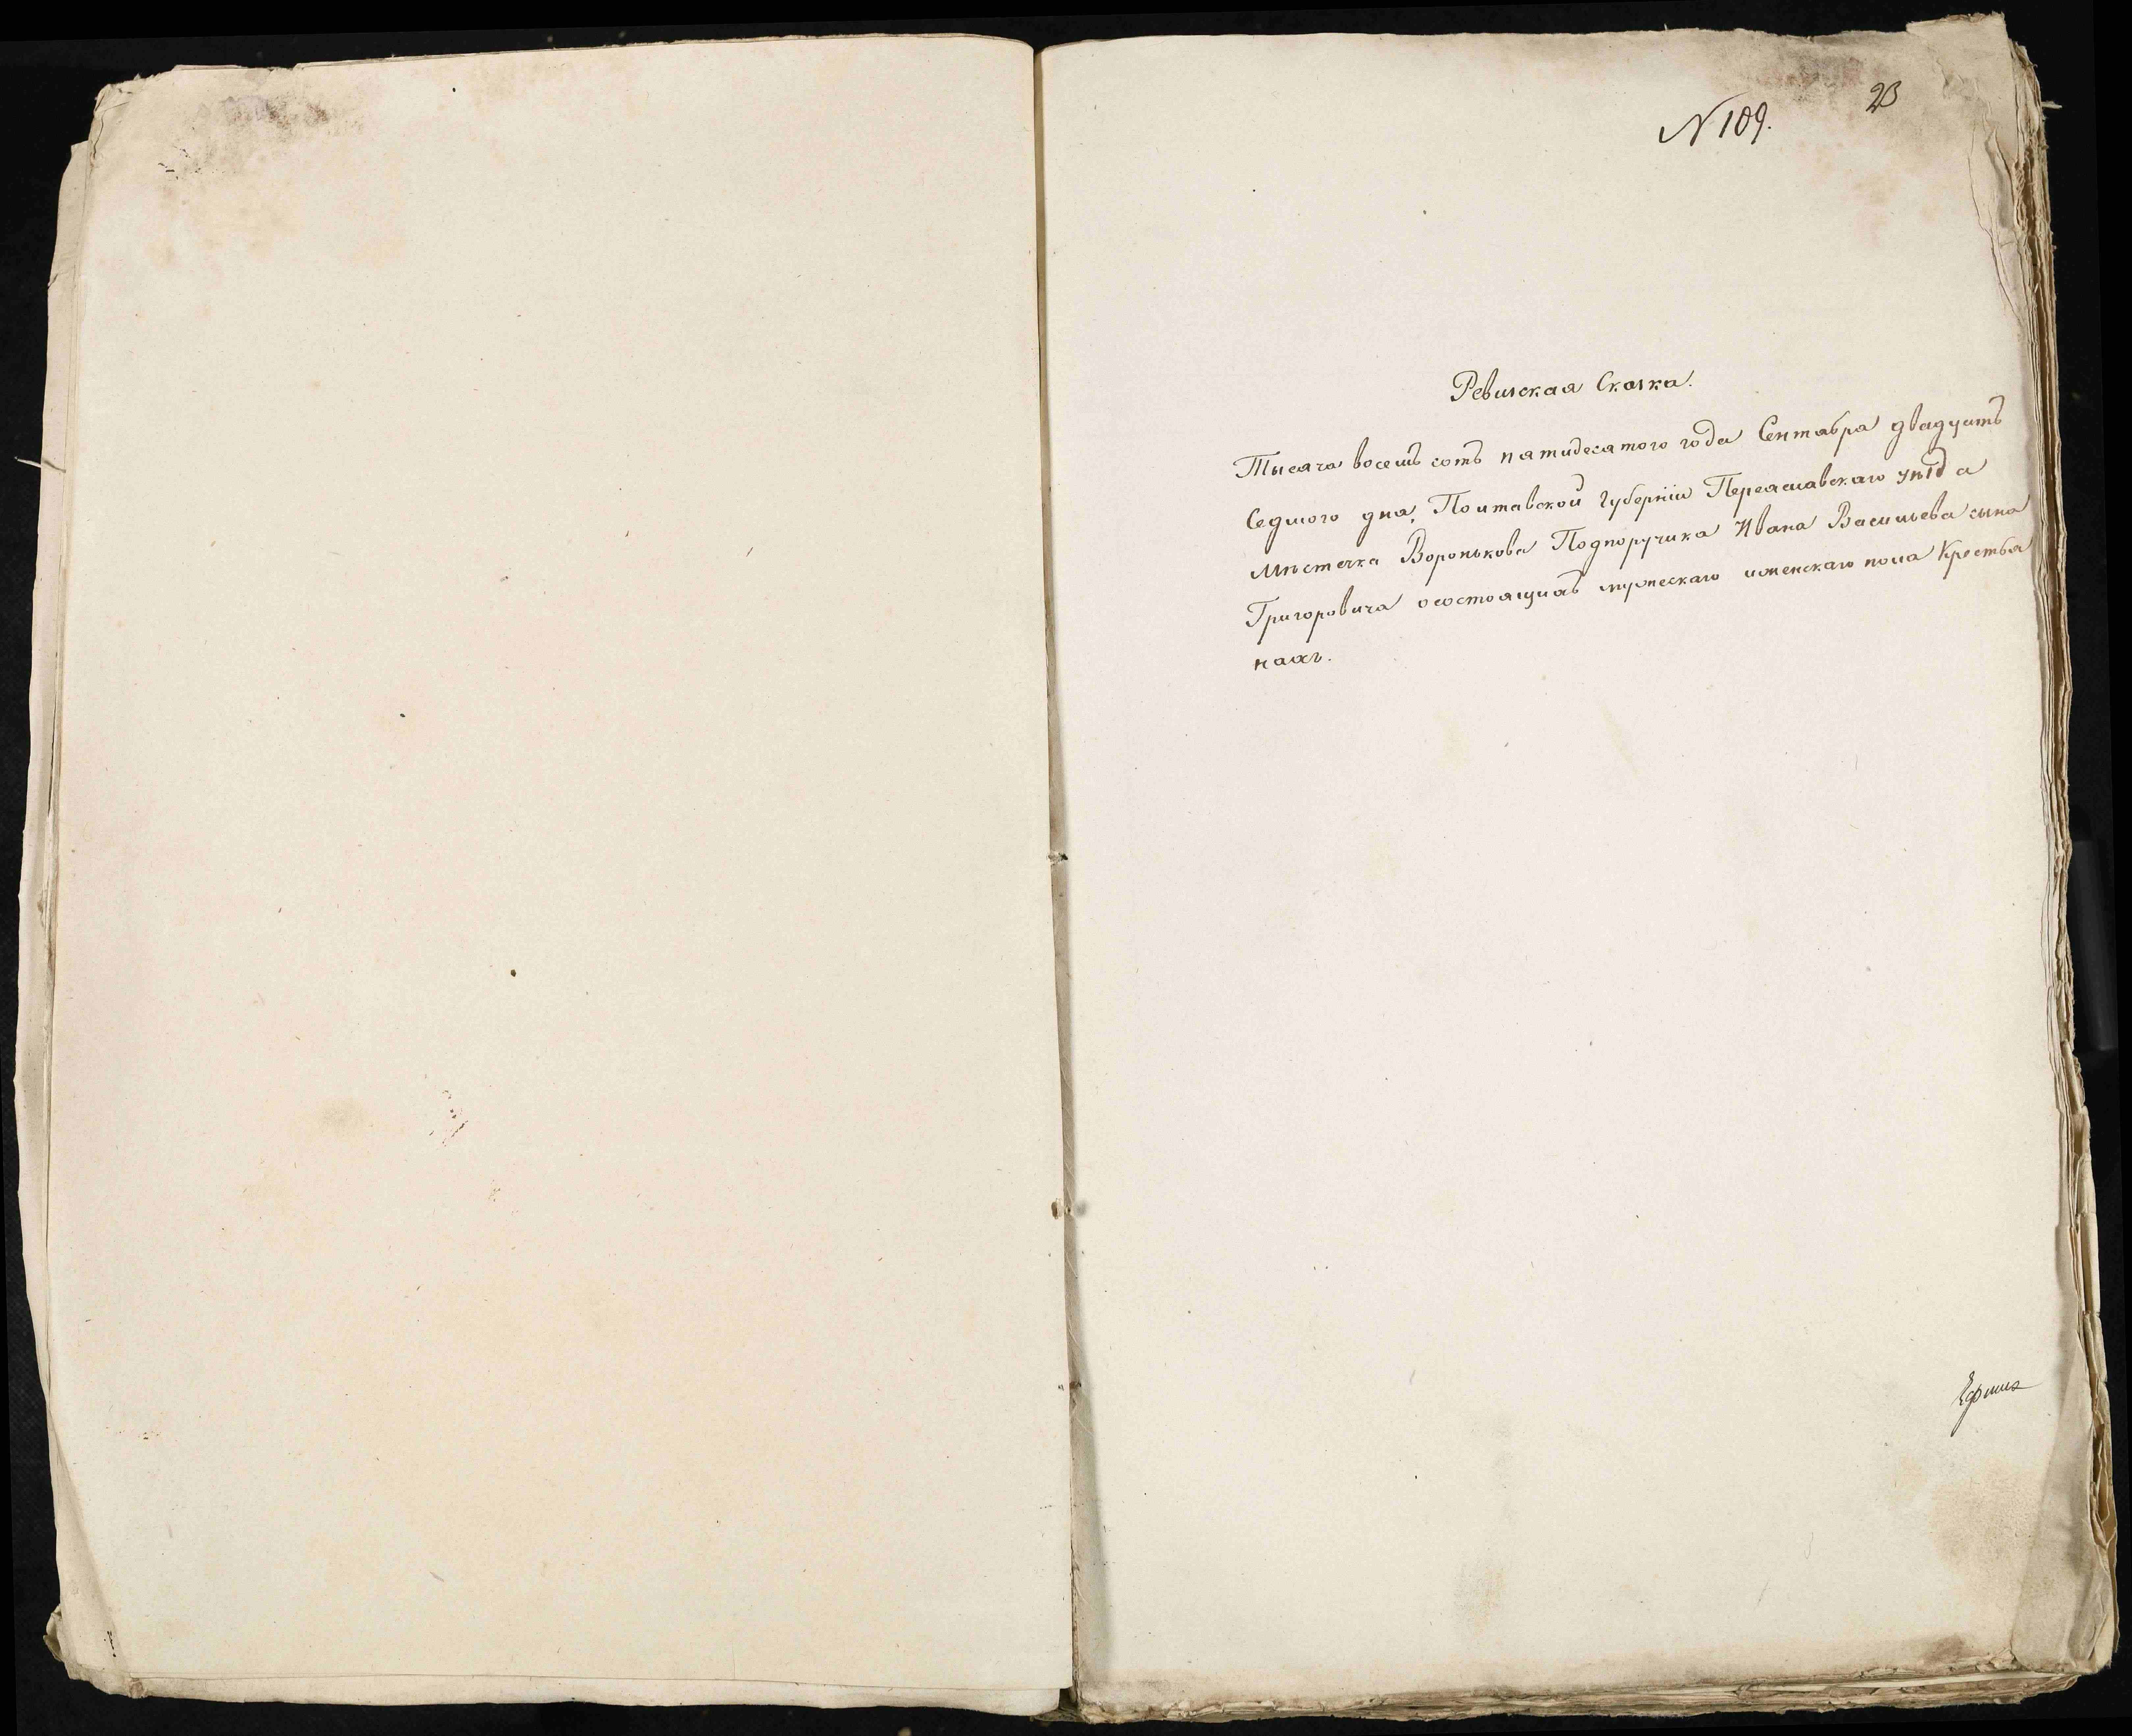 23
N 109.
Ревизская Сказка.
Тысяча восемь сотъ пятидесятого года Сентября двадцать
Седмого дня, Полтавской Губерніи Переяславскаго уѣзда
мѣстечка Воронькова Подпоручика Ивана Васильева сына
Григоровича о состоящихъ мужескаго и женскаго пола Крестья
нахъ.